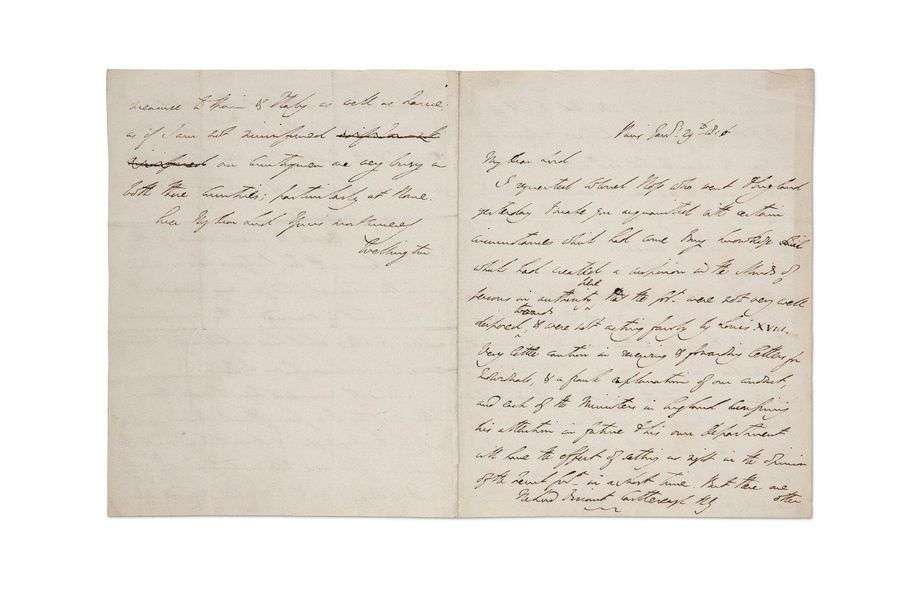 Paris Jan. 29th 1816
My Lord
I requested Colonel who went to England
yesterday to make you acquainted with certain
circumstances which had come to my knowledge
which had created a suspicion in the Minds of
persons in authority here that the Govt. were not very well
disposed towards & were not acting fairly by Louis XVIII.
Very little caution in receiving & forwarding letters for
Individuals, & a frank explanation of our conduct,
and each of the Ministers in England confining
his attention in future to his own Department
will have the effect of setting us right in the opinion
of the French Govt. in a short time. But there are
other
Viscount Castlereagh KG
& Italy as well as
as if I am not misinformed
our Countrymen are very busy in
both those Countries; particularly at Rome.
My Lord Yours most sincerely
Wellington